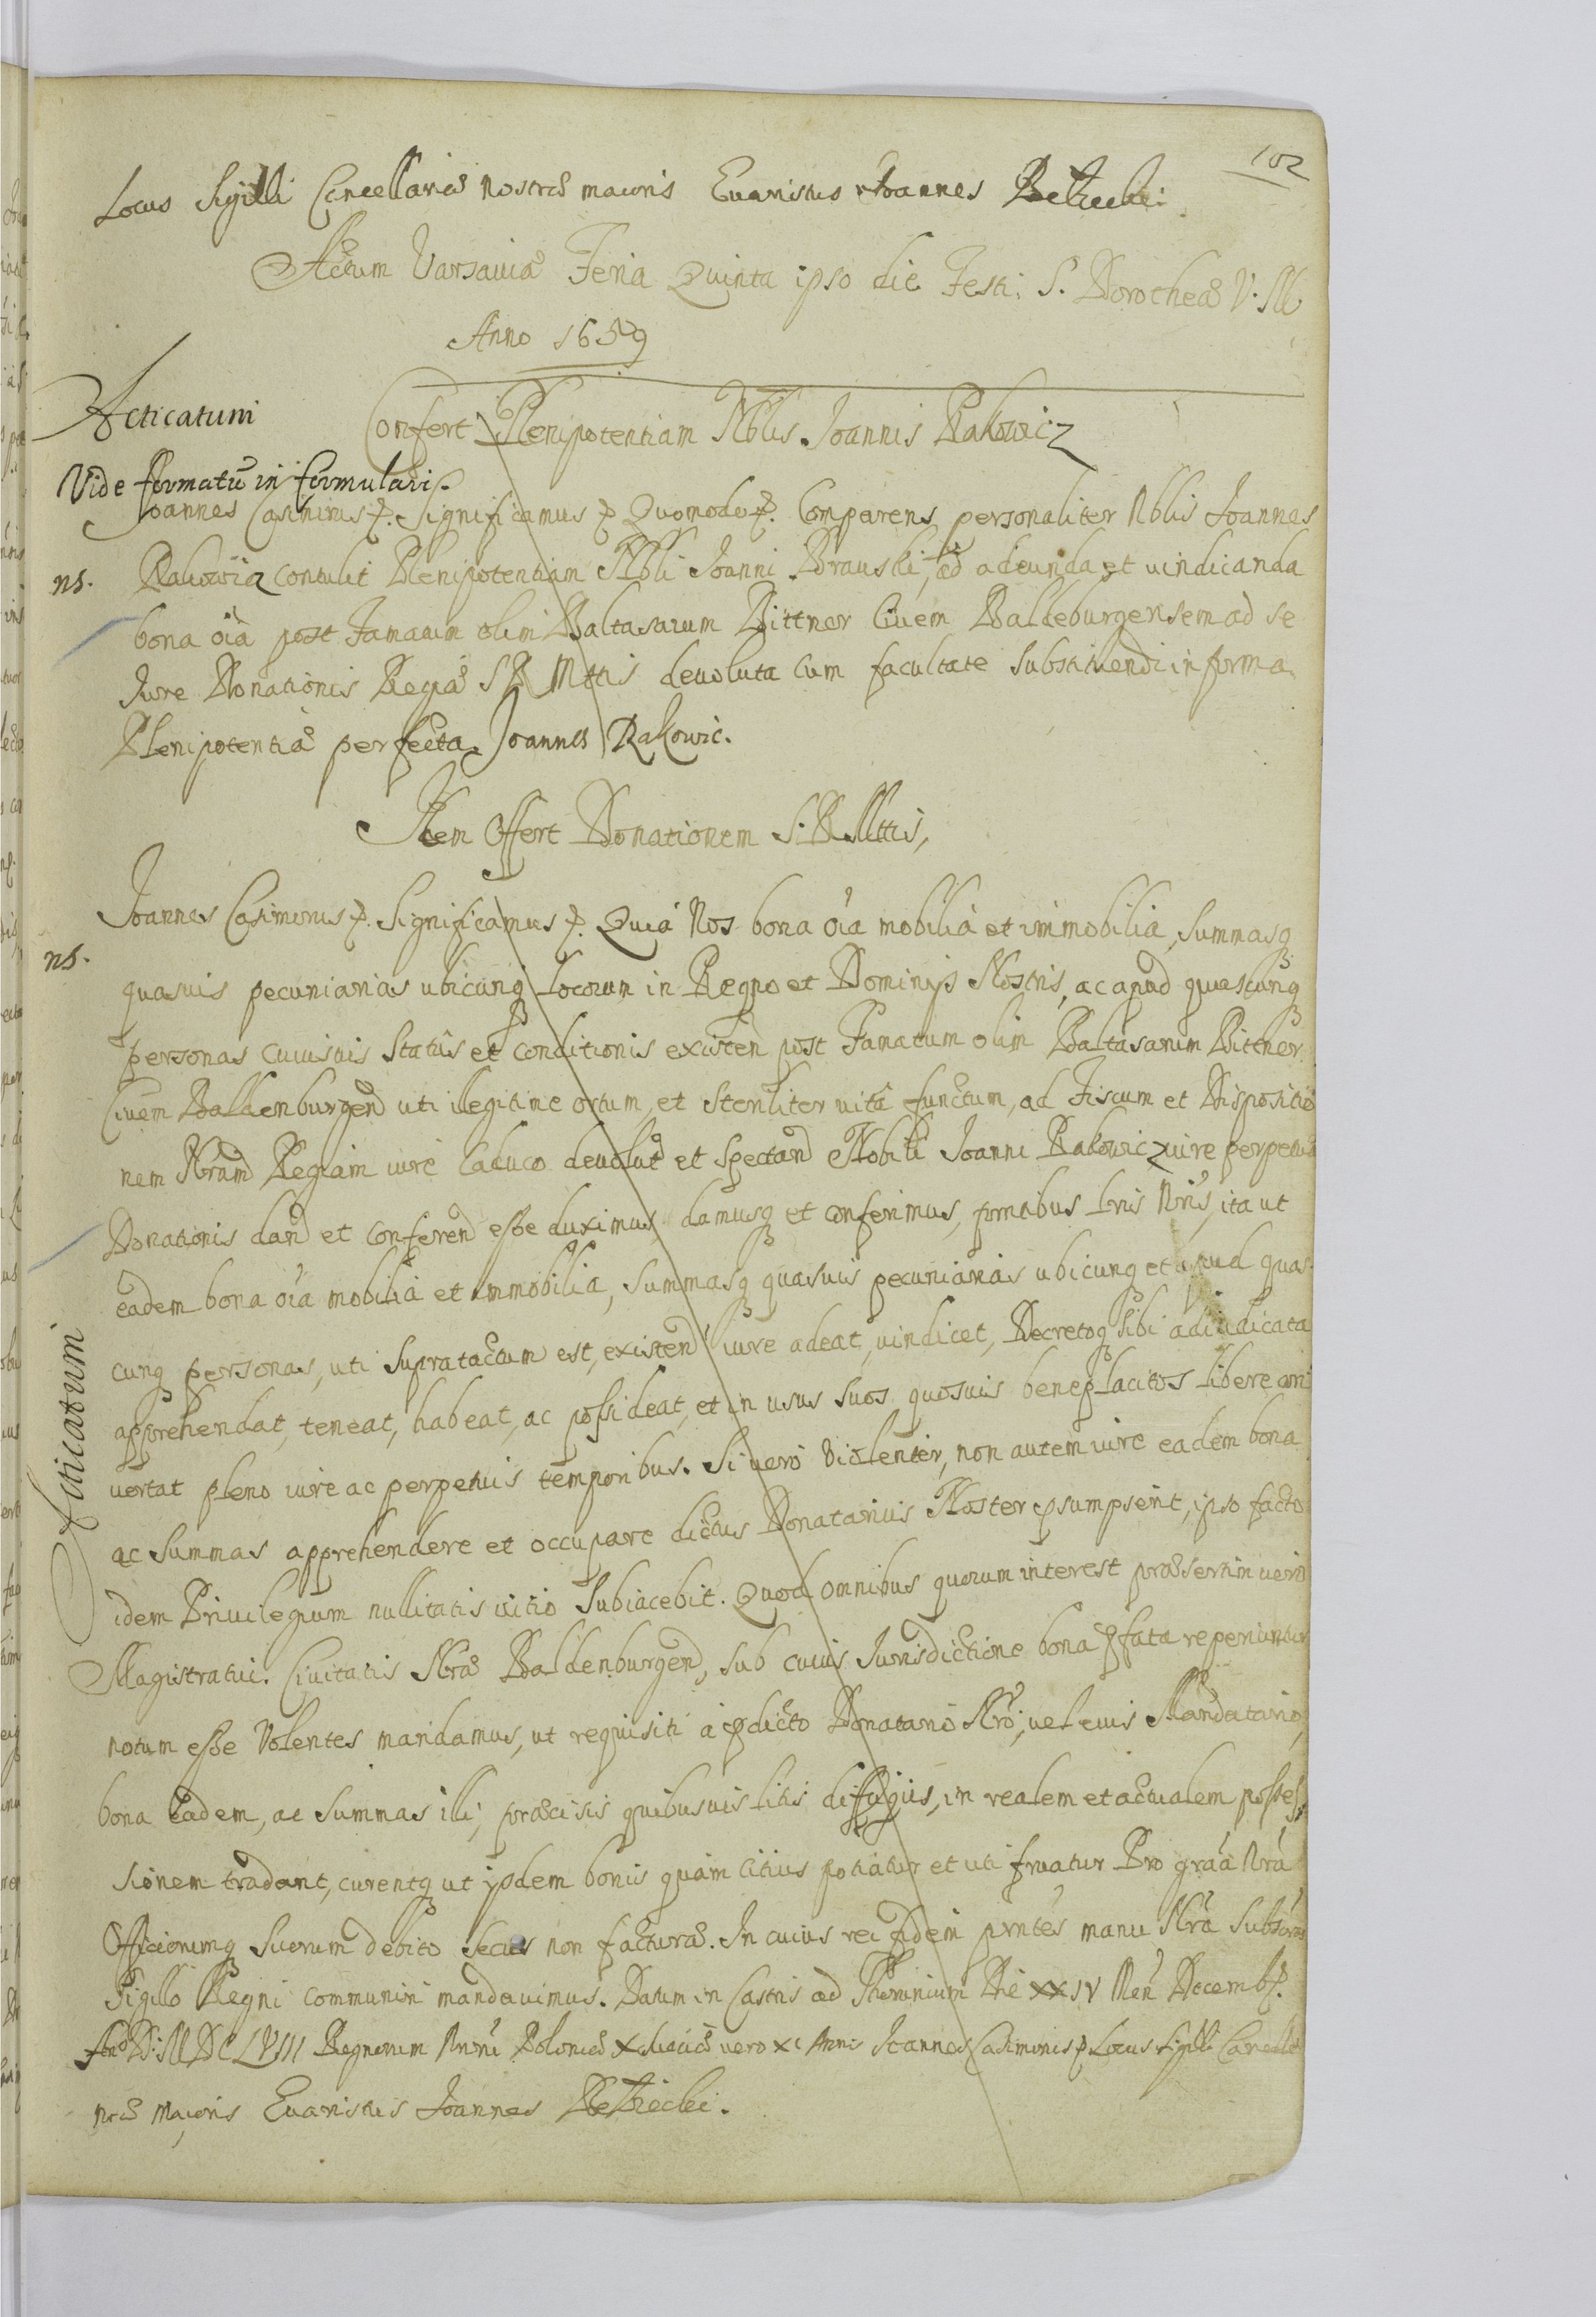 102
Locus Sigilli Cancellariæ nostræ maioris Euaristus Joannes Bełzecki.
Actum Varsauiæ Feria Quinta ipso die Festi S. Dorotheæ V. M
Anno 1659
Acticatum
Confert Plenipotentiam Nblis Joannis Rakowicz
Vide formatū in formulari
Joannes Casimirus &. Significamus & Quomodo &. Comparens personaliter Nblis Joannes
ns. Rakowicz contulit Plenipotentiam Nbli Joanni Brauski, ad adeunda et vindicanda
bona oia post Famatum olim Baltasarum Bittner Ciuem Baldeburgensem ad se
Jure Donationis Regiæ S R Mttis deuoluta cum facultate substituendi in forma
Plenipotentiæ perfecta. Joannes Rakowic.
Idem Offert Donationem S. R Mttis,
Joannes Casimirus &. Significamus &. Quia Nos bona oia mobilia et immobilia, Summasq
ns. quasuis pecuniarias ubicunq Locorum in Regno et Dominijs Nostris, ac apud quascunq
personas cuiusuis Statûs et conditionis existen post Famatum olim Baltasarum Bittner
Ciuem Baldenburgen uti illegitime ortum, et steriliter vitâ functum, ad Fiscum et Dispositio
nem Nram Regiam iure Caduco deuolut et spectan Nobili Joanni Rakowicz iure perpetuæ
Donationis dan et conferen esse duximus, damusq et conferimus, prntibus Lris Nris, ita ut
eadem bona oia mobilia et immobilia, Summasq quasuis pecuniarias ubicunq et apud quas
cunq personas, uti supratactum est, existen iure adeat, vindicet, Decretoq sibi adiudicata
apprehendat, teneat, habeat, ac possideat, et in usus suos quosuis beneplacitos libere con
uertat pleno iure ac perpetuis temporibus. Si vero violenter, non autem iure eadem bona
ac Summas apprehendere et occupare dictus Donatarius Noster psumpserit, ipso facto
idem Priuilegium nullitatis vitio subiacebit. Quod omnibus quorum interest præsertim vero
Magistratui Ciuitatis Nræ Baldenburgen, sub cuius Jurisdictione bona pfata reperiuntur
notum esse Volentes mandamus, ut requisiti a pdicto Donatario Nro, vel eius Mandatario,
bona eadem, ac Summas illi, præcisis quibusuis litis diffugiis, in realem et actualem posses
sionem tradant, curentq ut ijsdem bonis quam citius potiatur et uti fruatur Pro graa Nra
Officiorumq suorum debito secus non facturæ. In cuius rei fidem prntes manu Nra subscr
Sigillo Regni communiri mandauimus. Datum in Castris ad Thorunium Die XXIV Men Decemb.
And D: M DC LVIII Regnorum Nrorum Poloniæ X Sueciæ vero XI Anno Joannes Casimirus & Locus Sigilli Cancell
nræ Maioris Euaristus Joannes Bełzecki.
Acticatum